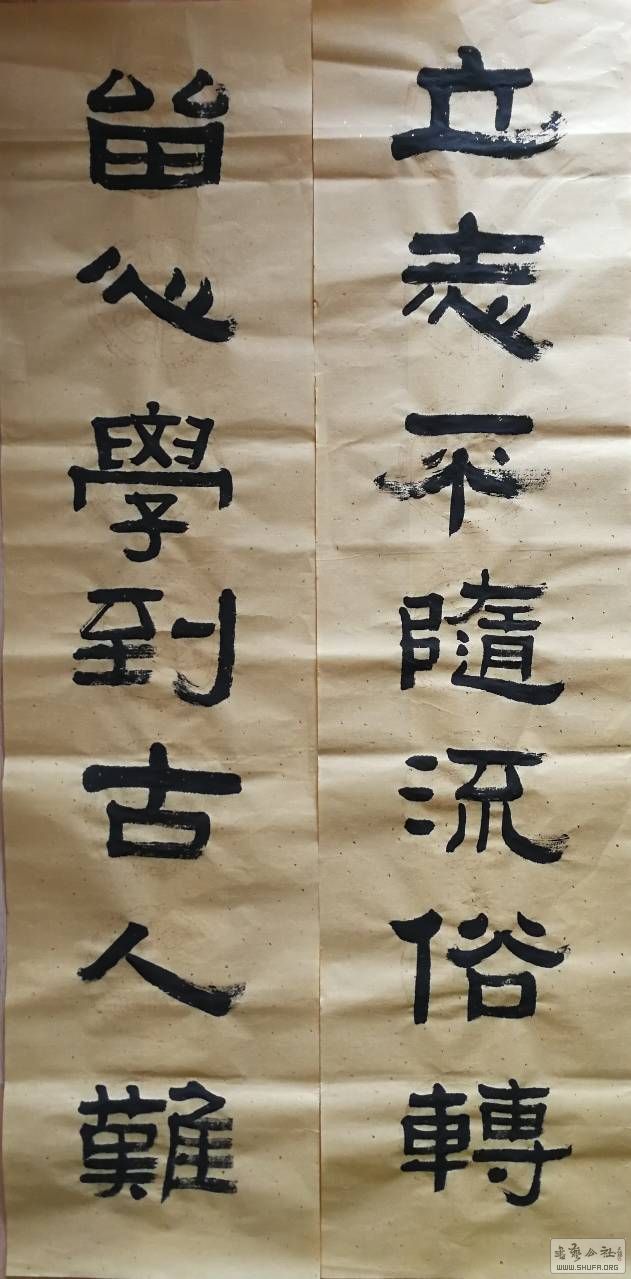 立志不隨流俗轉
畱心學到古人難
书艺公社
WWW.SHUFA.ORG